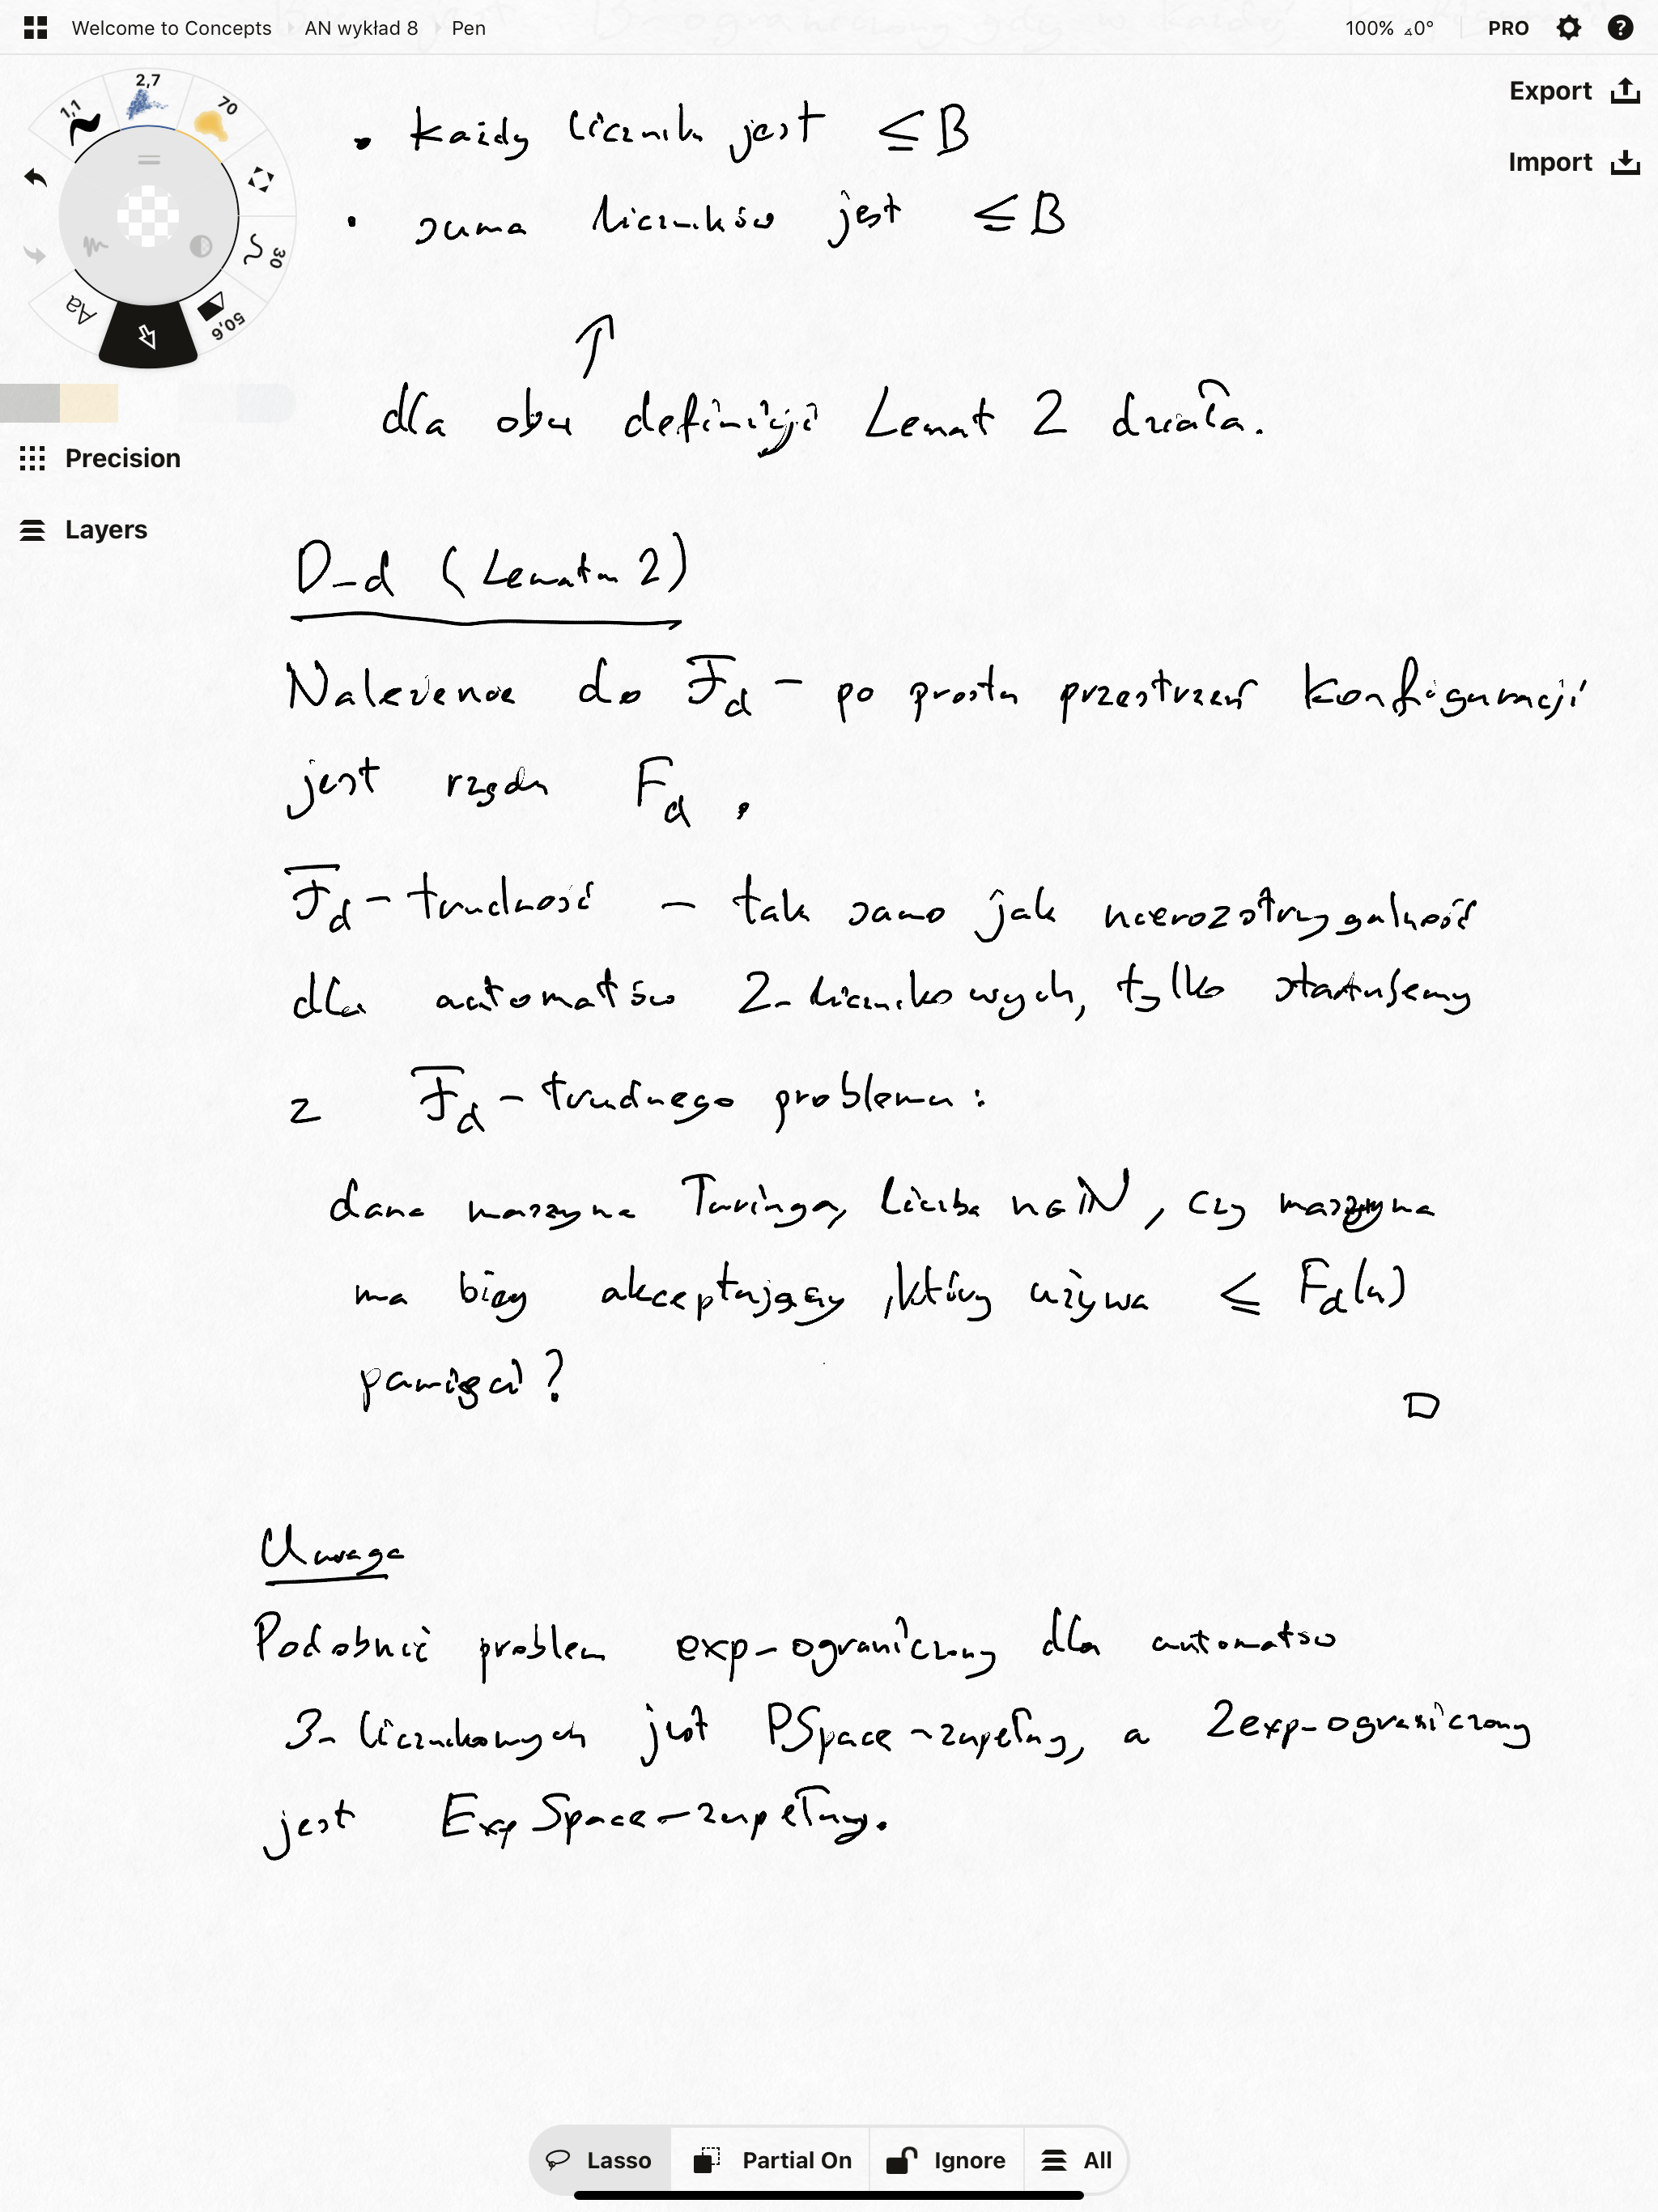 Welcome to Concepts › AN wykład 8 › Pen
100% ⦟0° PRO
Export
Import
1,1
2,7
70
30
50,6
Aa
Precision
Layers
• każdy licznik jest ≤ B
• suma liczników jest ≤ B
↑
dla obu definicji Lemat 2 działa.
D-d (Lematu 2)
Należenie do F̅_d – po prostu przestrzeń konfiguracji
jest rzędu F_d.
F̅_d – trudność – tak samo jak nierozstrzygalność
dla automatów 2-licznikowych, tylko startujemy
z F̅_d – trudnego problemu:
dana maszyna Turinga, liczba n∈ℕ, czy maszyna
ma bieg akceptujący, który używa ≤ F_d(n)
pamięci?
□
Uwaga
Podobnie problem exp-ograniczony dla automatów
3-licznikowych jest PSpace-zupełny, a 2exp-ograniczony
jest ExpSpace-zupełny.
Lasso Partial On Ignore All